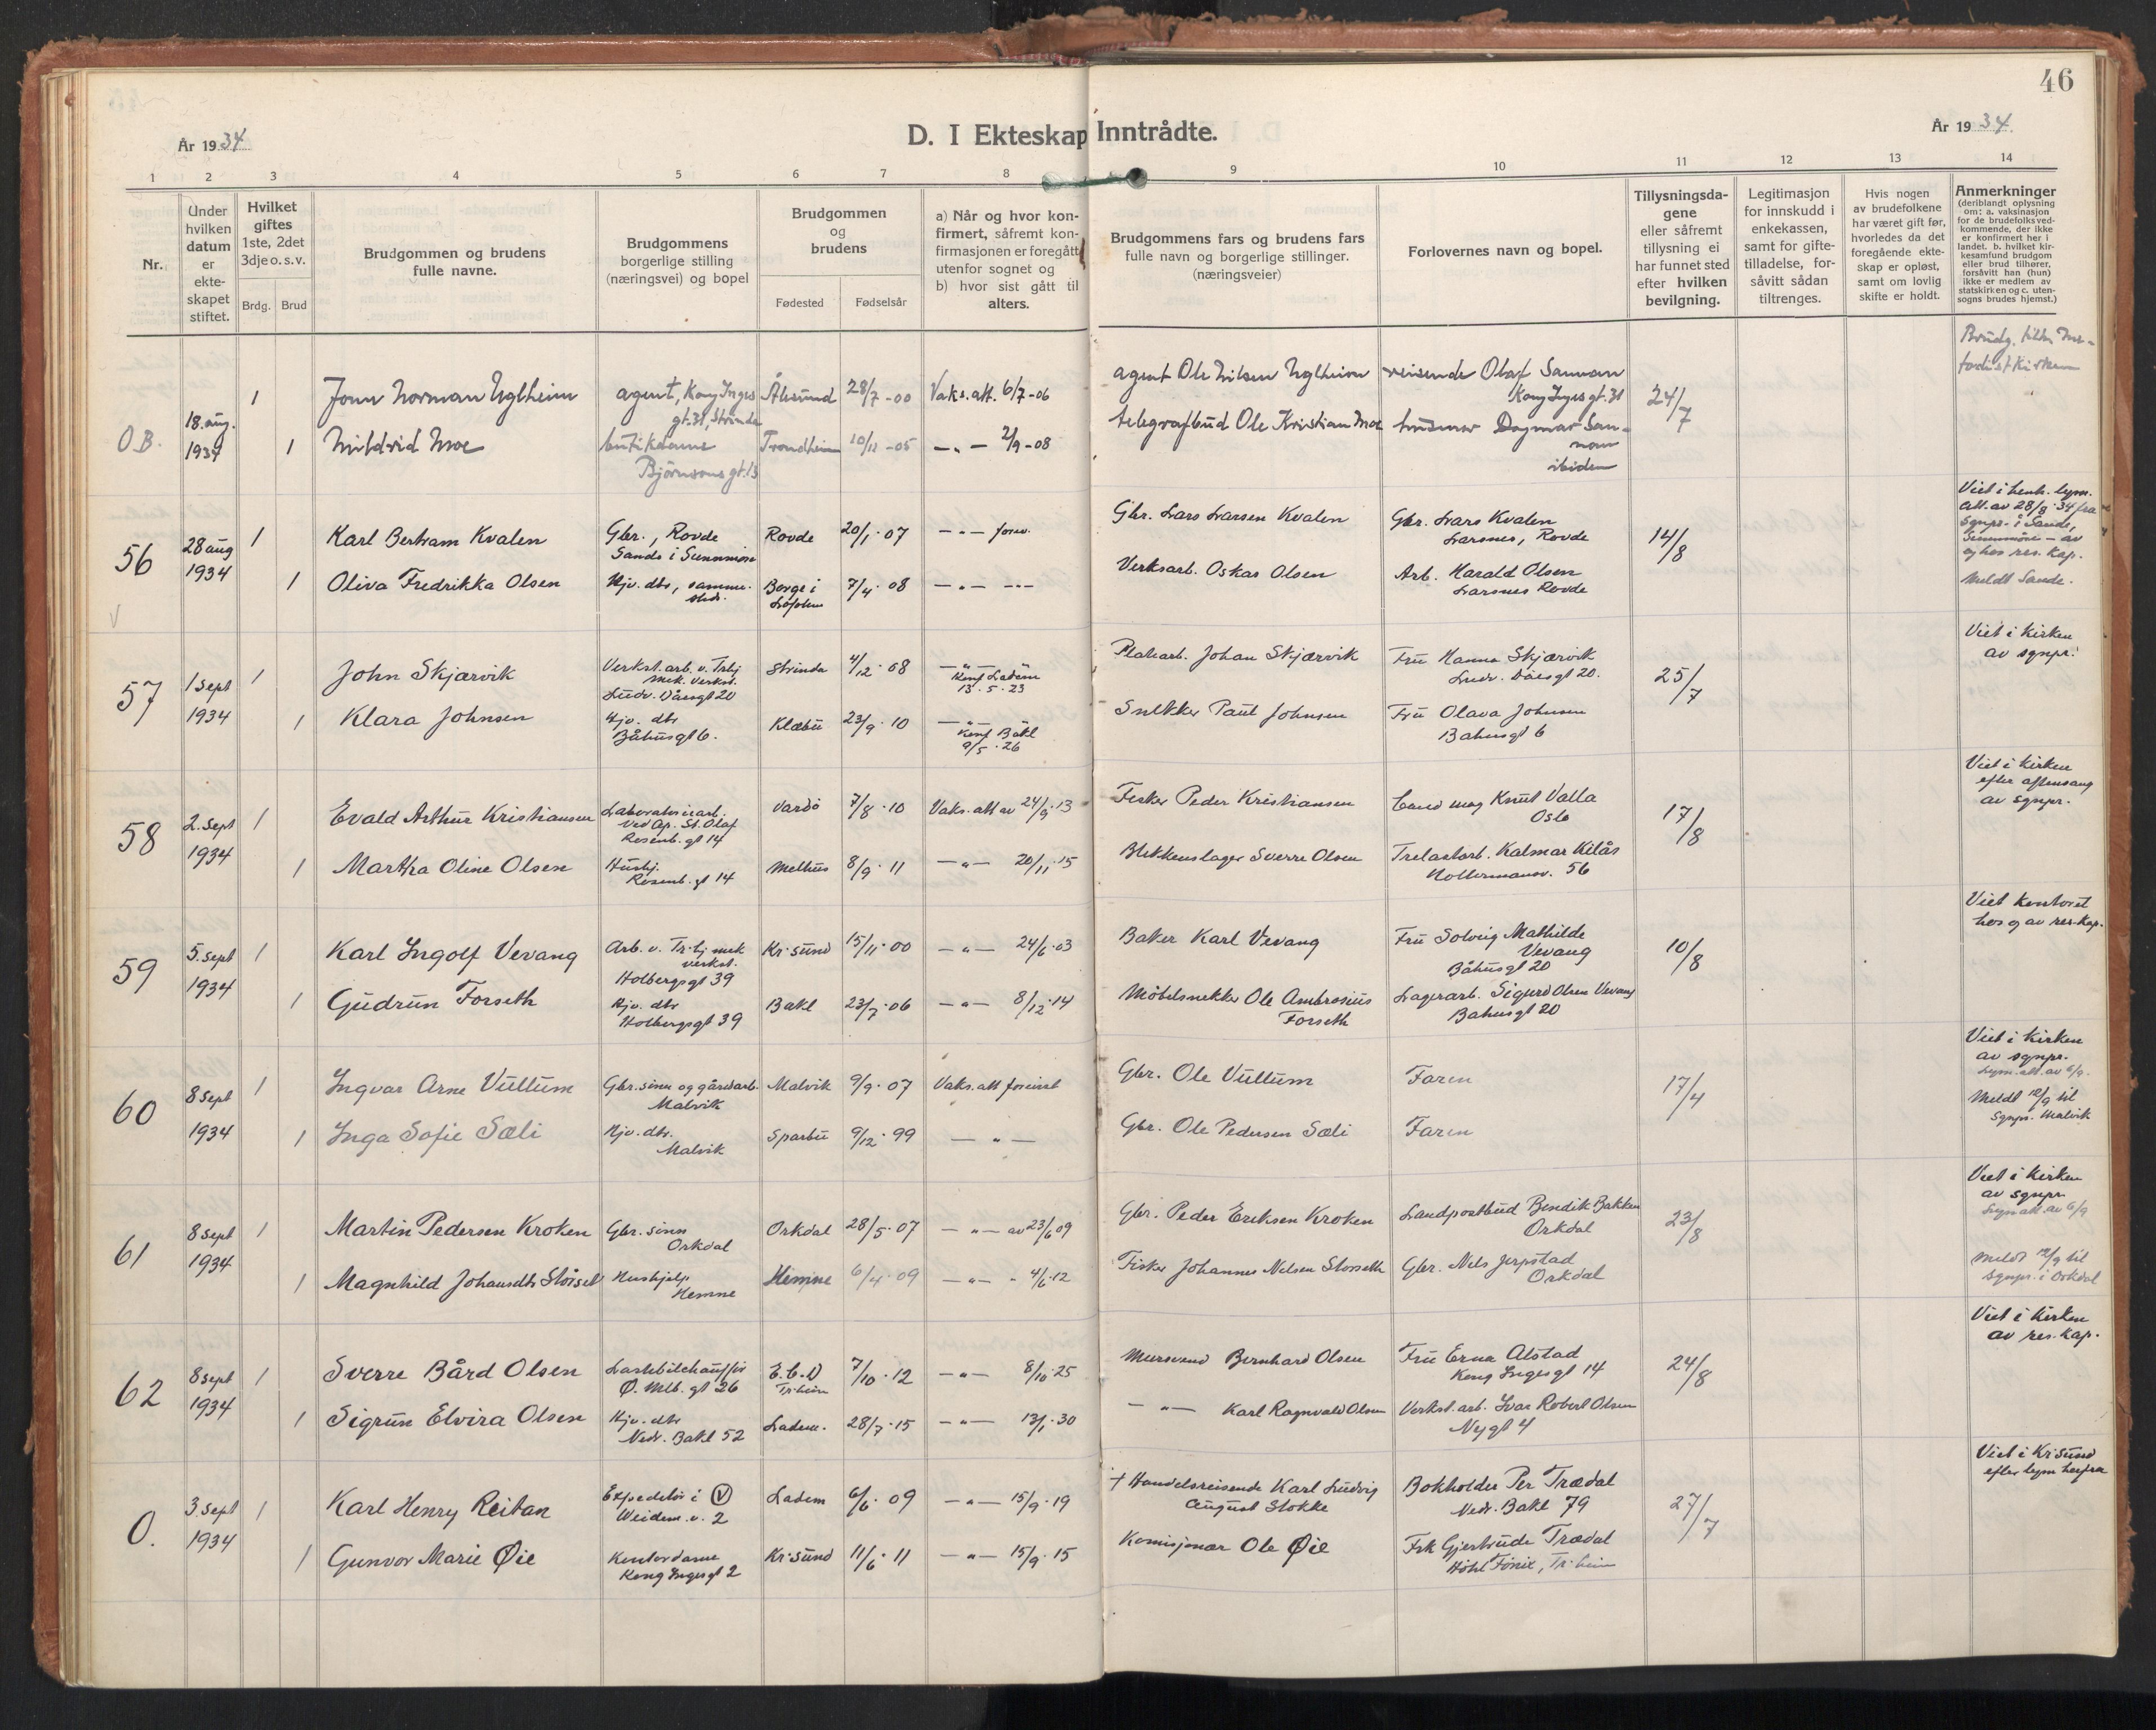 46
År 1934
D. I Ekteskap Inntrådte.
År 1934
1 2 3 4 5 6 7 8 9 10 11 12 13 14
Nr.
Under
hvilken
datum
er
ekte-
skapet
stiftet.
Hvilket
giftes
1ste, 2det
3dje o. s. v.
Brdg. Brud
Brudgommen og brudens
fulle navne.
Brudgommens
borgerlige stilling
(næringsvei) og bopel
Brudgommen
og
brudens
Fødested Fødselsår
a) Når og hvor kon-
firmert, såfremt kon-
firmasjonen er foregått
utenfor sognet og
b) hvor sist gått til
alters.
Brudgommens fars og brudens fars
fulle navn og borgerlige stillinger.
(næringsveier)
Forlovernes navn og bopel.
Tillysningsda-
gene
eller såfremt
tillysning ei
har funnet sted
efter hvilken
bevilgning.
Legitimasjon
for innskudd i
enkekassen,
samt for gifte-
tilladelse, for-
såvitt sådan
tiltrenges.
Hvis nogen
av brudefolkene
har været gift før,
hvorledes da det
foregående ekte-
skap er opløst,
samt om lovlig
skifte er holdt.
Anmerkninger
(deriblandt oplysning
om: a. vaksinasjon
for de brudefolks ved-
kommende, der ikke
er konfirmert her i
landet. b. hvilket kir-
kesamfund brudgom
eller brud tilhører,
forsåvitt han (hun)
ikke er medlem av
statskirken og c. uten-
sogns brudes hjemst.)
O.B.
18. aug.
1934
1
Norman Uglheim
agent, Kong Inges
gt. 31, Strinda
Ålesund
28/7 -00
Vaks.att. 6/7 -06
agent Ole Nilsen Uglheim
reisende Olaf Sannan
Kong Inges gt. 31
24/7
1
Mildrid Moe
butikdame
Bjørnsons gt. 13
Trondheim
10/12 -05
— „ — 2/9 -08
telegrafbud Ole Kristian Moe
husmor Dagmar San-
nan
ibidem
56
28 aug
1934
1
Karl Bertram Kvalen
Gbr., Rovde
Sande i Sunnmøre
Rovde
20/1 · 07
— „ — forev.
Gbr. Lars Larsen Kvalen
Gbr. Lars Kvalen
Larsnes, Rovde
14/8
1
Oliva Fredrikka Olsen
Hjv. dtr, samme-
steds.
Borge i
Lofoten
7/4 · 08
— „ — — „ —
Verksarb. Oskar Olsen
Arb. Harald Olsen
Larsnes Rovde
att. av 28/8 · 34 fra
sgnpr. i Sande,
Sunnmøre — av
og hos res. kap.
Meldt Sande.
57
1 Sept
1934
1
John Skjærvik
Verkst. arb. v. Trhj
mek. verkst.
Ludv. Dåesgt 20
Strinda
4/12 · 08
— „ —
Konf Ladem
13 · 5 · 23
Platearb. Johan Skjærvik
Fru Hanna Skjærvik
Ludv. Dåesgt 20.
25/7
Viet i Kirken
av sgnpr.
1
Klara Johnsen
Hjv. dtr
Båhusgt 6.
Klæbu
23/9 · 10
— „ —
Konf Bakl
9/5 · 26
Snekker Paul Johnsen
Fru Olava Johnsen
Bahusgt 6
58
2. Sept
1934
1
Evald Arthur Kristiansen
Laboratoriearb.
ved Ap. St. Olaf
Rosenb. gt 14
Vardø
7/8 · 10
Vaks. att av 24/9 · 13
Fisker Peder Kristiansen
Cand mag Knut Valla
Oslo
17/8
Viet i Kirken
efter aftensang
av sgnpr.
1
Martha Oline Olsen
Hushj.
Rosenb. gt 14
Melhus
8/9 · 11
— „ — 20/11 · 15
Blikkenslager Sverre Olsen
Trelastarb. Kalmar Kilås
56
59
5. Sept
1934
1
Karl Ingolf Vevang
Arb. v. Tr.hj mek
verkst.
Holbergsgt 39
Kr.sund
15/11 · 00
— „ — 24/6 · 03
Baker Karl Vevang
Fru Solveig Mathilde
Vevang
Båhusgt 20
10/8
Viet kontoret
hos og av res. kap.
1
Gudrun Forseth
Hjv. dtr
Holbergsgt 39
Bakl
23/7 · 06
— „ — 8/12 · 14
Møbelsnekker Ole Ambrosius
Forseth
Lagerarb. Sigurd Olsen Vevang
Bahusgt 20
60
8 Sept
1934
1
Ingvar Arne Vullum
Gbr. sønn og gårdsarb.
Malvik
Malvik
9/9 · 07
Vaks. att forevist
Gbr. Ole Vullum
Faren
17/4
Viet i Kirken
av sgnpr.
Lysn. att. av 6/9.
Meldt 12/9 til
sgnpr. Malvik
1
Inga Sofie Sæli
Hjv. dtr.
Malvik
Sparbu
9/12 · 99
— „ —
Gbr. Ole Pedersen Sæli
Faren
61
8 Sept
1934
1
Martin Pedersen Kroken
Gbr. sønn
Orkdal
Orkdal
28/5 · 07
— „ — av 23/6 09
Gbr. Peder Eriksen Kroken
Landpostbud Bendik Bakken
Orkdal
23/8
Viet i Kirken
av sgnpr
Lysn att. av 6/9
Meldt 12/9 til
sgnpr. i Orkdal
1
Magnhild Johansdtr Storset
Hushjelp
Hemne
Hemne
6/4 · 09
— „ — „ 4/6 · 12
Fisker Johannes Nelsen Storseth
Gbr. Nils Jerpstad
Orkdal
62
8 Sept
1934
1
Sverre Bård Olsen
Lastebilchauffør
Ø. Mlb. gt 26
E.C.D
Tr.heim
7/10 · 12
— „ — 8/10 · 25
Mursvend Bernhard Olsen
Fru Erna Alstad
Kong Ingesgt 14
24/8
Viet i Kirken
av res. kap.
1
Sigrun Elvira Olsen
Hjv. dtr
Nedr. Bakl 52
Ladem.
28/7 · 15
— „ — 13/1 · 30
— „ — Karl Ragnvald Olsen
Verkst. arb. Ivar Robert Olsen
Nygt 4
O.
3. Sept
1934
1
Karl Henry Reitan
Expeditør i V
Weidem. v. 2
Ladem
6/6 · 09
— „ — 15/9 · 19
+ Handelsreisende Karl Ludvig
August Stokke
Bokholder Per Trædal
Nedr. Bakl 79
27/7
Viet i Kr.sund
efter lysn herfra
1
Gunvor Marie Øie
Kontordame
Kong Ingesgt 2
Kr.sund
11/6 · 11
— „ — 15/9 · 15
Komisjonær Ole Øie
Frk Gjertrude Trædal
Hotel Fønix, Tr.heim